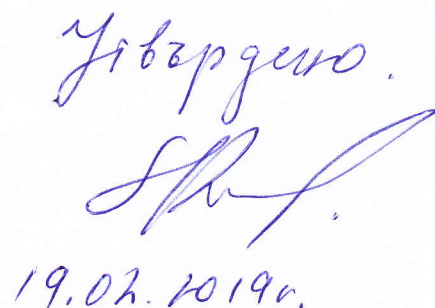 Утвърдено.
19.02.2019г.